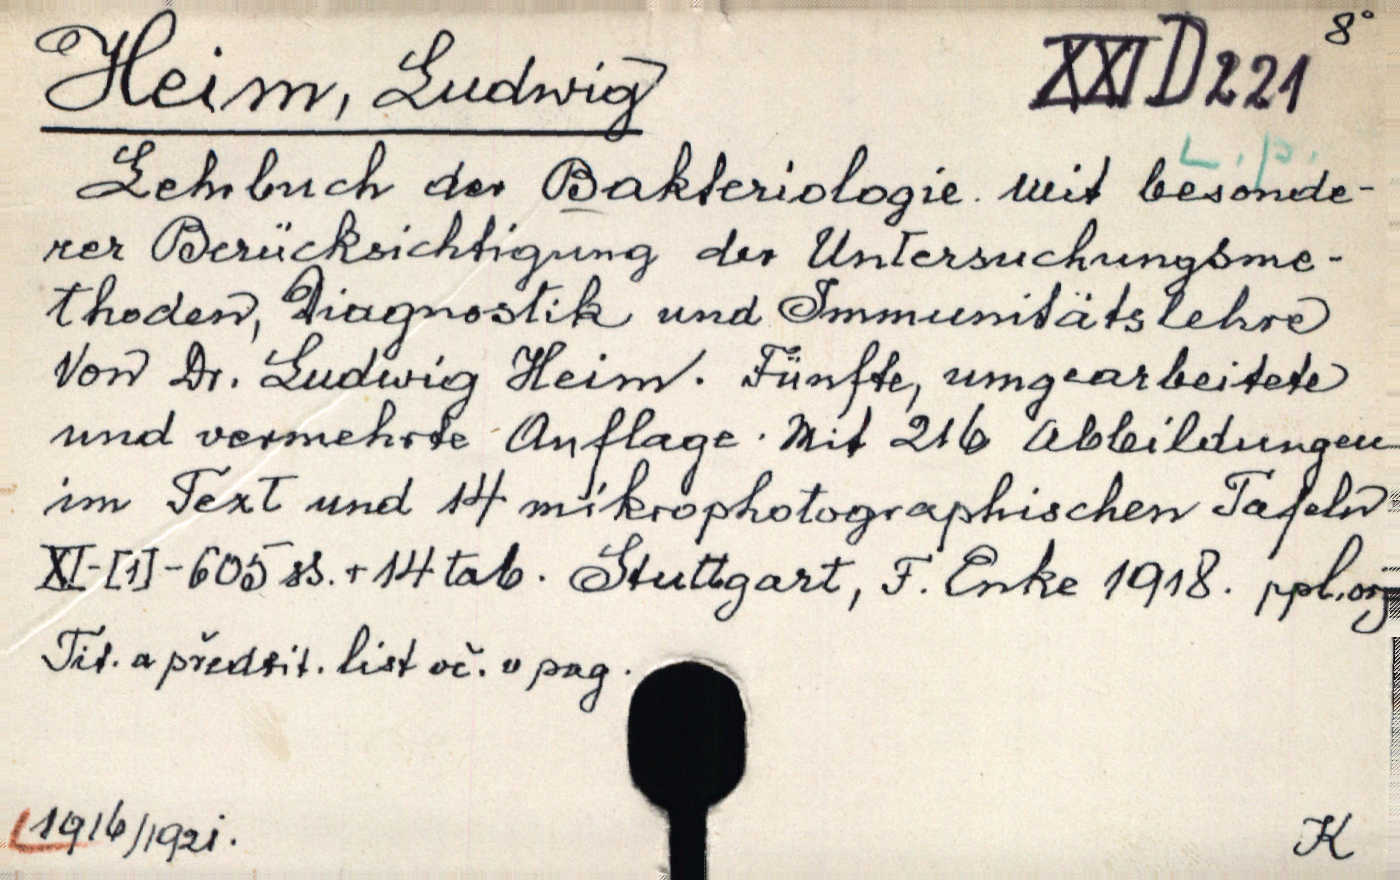 8°
Heim, Ludwig XXI D 221
L. p.
Lehrbuch der Bakteriologie. Mit besonde-
rer Berücksichtigung der Untersuchungsme-
thoden, Diagnostik und Immunitätslehre
Von Dr. Ludwig Heim. Fünfte, umgearbeitete
und vermehrte Auflage. Mit 216 Abbildungen
im Text und 14 mikrophotographischen Tafeln
XI-[1]-605 ss. + 14 tab. Stuttgart, F. Enke 1918. ppl. orj
Tit. a předtit. list oč. v pag.
1916/1921.
K